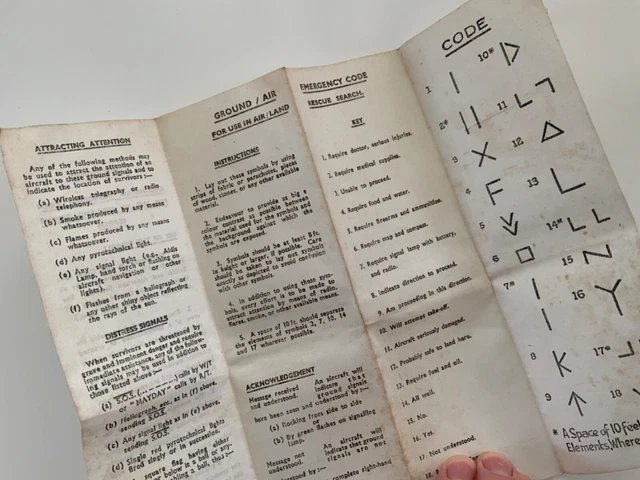 ATTRACTING ATTENTION
Any of the following methods may
be used to attract the attention of an
aircraft to these ground signals and to
indicate the location of survivors:—
(a) Wireless telegraphy or radio
telephony.
(b) Smoke produced by any means
whatsoever.
(c) Flames produced by any means
whatsoever.
(d) Any pyrotechnical light.
(e) Any signal light (e.g., Aldis
Lamp, hand torch or flashing on
aircraft navigation or other
lights).
(f) Flashes from a heliograph or
any other shiny object reflecting
the rays of the sun.
DISTRESS SIGNALS
When survivors are threatened by
grave and imminent danger and require
immediate assistance, any of the follow-
ing signals may be used in addition to
those listed above:—
(a) S.O.S. calls by W/T
or "MAYDAY" calls by R/T.
(b) Heliograph, as in (f) above,
sending S.O.S.
(c) Any signal light as in (e) above,
sending S.O.S.
(d) Single red pyrotechnical lights
fired singly or in succession.
square flag having either
GROUND / AIR
FOR USE IN AIR/LAND
INSTRUCTIONS
1. Lay out these symbols by using
strips of fabric or parachutes, pieces
of wood, stones, or any other available
material.
2. Endeavour to provide as big a
colour contrast as possible between
the material used for the symbols and
the background against which the
symbols are exposed.
3. Symbols should be at least 8ft.
in height or larger, if possible. Care
should be taken to lay out symbols
exactly as depicted to avoid confusion
with other symbols.
4. In addition to using these sym-
bols, every effort is to be made to
attract attention by means of radio,
flares, smoke, or other available means.
5. A space of 10 ft. should separate
the elements of symbols 2, 7, 10, 14
and 17 wherever possible.
ACKNOWLEDGEMENT
Message received and understood. An aircraft will
indicate that ground signals
have been seen and understood by:—
(a) Rocking from side to side
or
(b) By green flashes on signalling
lamp
Message not understood. An aircraft will
indicate that ground
signals are not
understood by:—
complete right-hand
EMERGENCY CODE
RESCUE SEARCH.
KEY
1. Require doctor, serious injuries.
2. Require medical supplies.
3. Unable to proceed.
4. Require food and water.
5. Require firearms and ammunition.
6. Require map and compass.
7. Require signal lamp with battery,
and radio.
8. Indicate direction to proceed.
9. Am proceeding in this direction.
10. Will attempt take-off.
11. Aircraft seriously damaged.
12. Probably safe to land here.
13. Require fuel and oil.
14. All well.
15. No.
16. Yes.
17. Not understood.
CODE
1
10*
2*
11
3
12
4
13
5
14*
6
15
7*
16
8
17*
9
18
* A Space of 10 Feet
Elements, Where